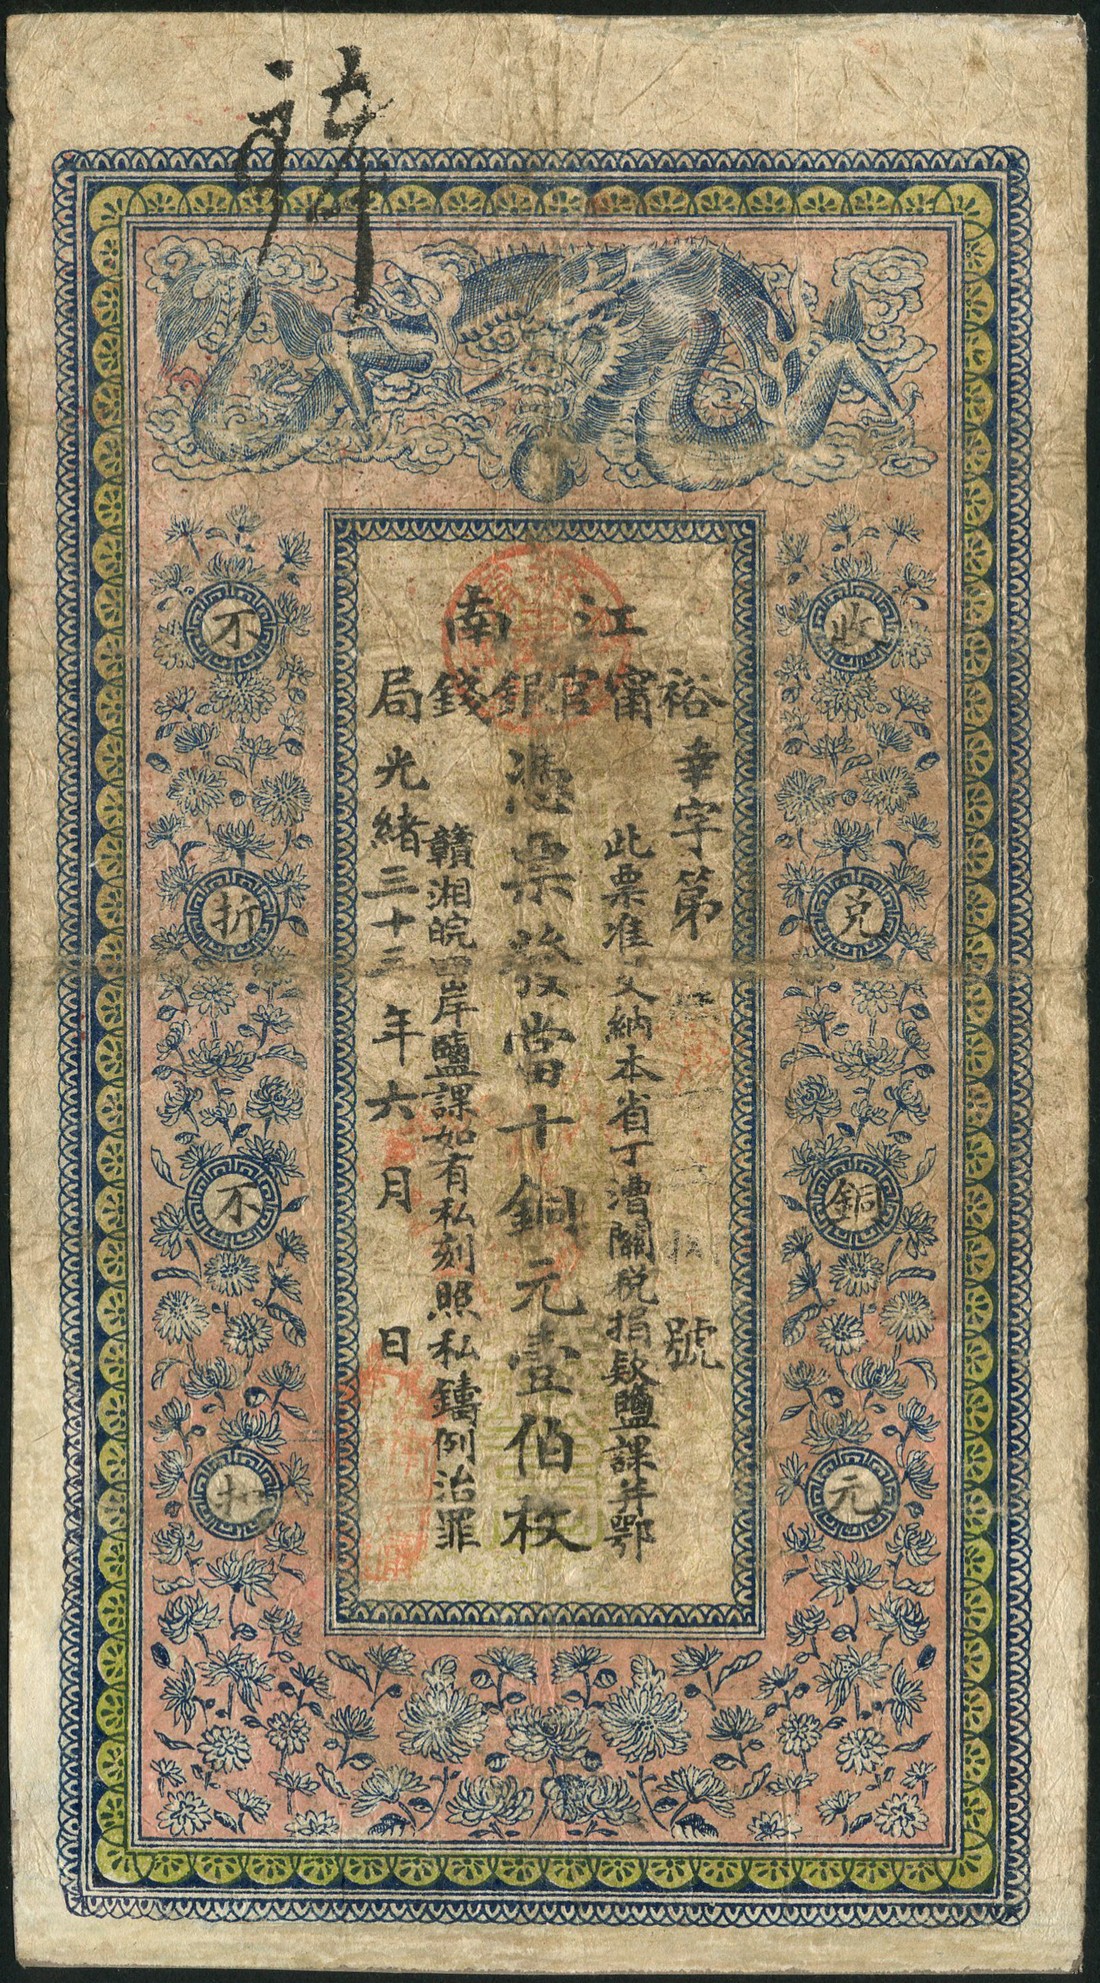 江南
裕甯官銀錢局
幸字第
號
此票准交納本省丁漕關稅捐欵鹽課并鄂
憑票發當十銅元壹佰枚
贛湘皖四岸鹽課如有私刻照私鑄例治罪
光緒三十三年六月 日
收兌銅元
不折不扣